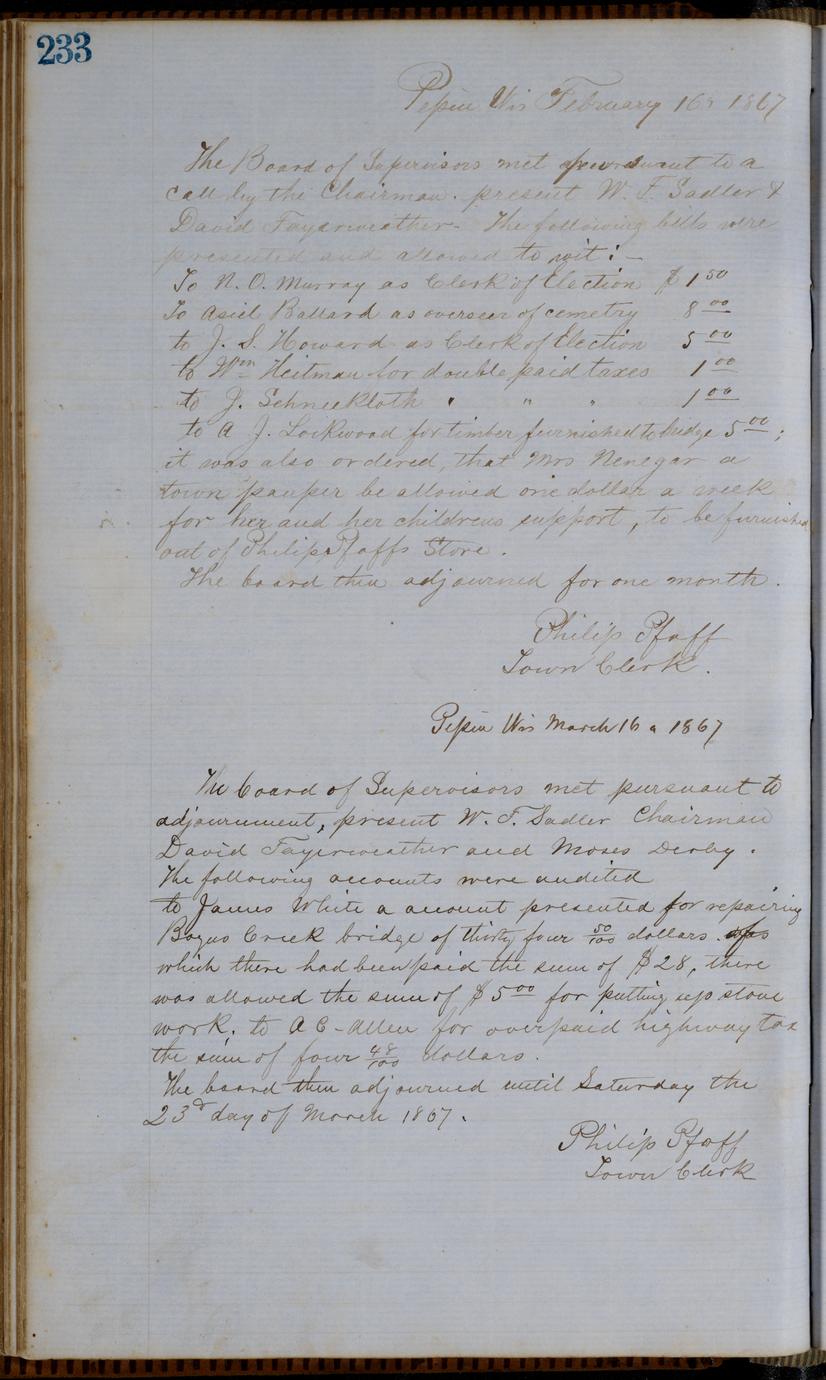 233
Pepin Wis February 16th 1867
The Board of Supervisors met pursuant to a
call by the Chairman. present W. F. Sadler &
David Fayerweather. The following bills were
presented and allowed to wit: —
To N. O. Murray as Clerk of Election $ 1 50
To Asiel Ballard as overseer of cemetry 8 00
to J. S. Howard as Clerk of Election 5 00
to Wm Heitman for double paid taxes 1 00
to J. Schneekloth " " " 1 00
to A J. Lockwood for timber furnished to bridge 5 00 ;
it was also ordered, that Mrs Nenegar a
town pauper be allowed one dollar a week
for her and her childrens support, to be furnished
out of Philip Pfaffs Store.
The board then adjourned for one month.
Philip Pfaff
Town Clerk.
Pepin Wis March 16 1867
The board of Supervisors met pursuant to
adjournment, present W. F. Sadler Chairman
David Fayerweather and Moses Derby.
The following accounts were audited
to James White a account presented for repairing
Bogus Creek bridge of thirty four 50/100 dollars. of
which there had been paid the sum of $28, there
was allowed the sum of $5 00 for putting up stone
work. to A C - Allen for overpaid highway tax
the sum of four 48/100 dollars.
The board then adjourned until Saturday the
23d day of March 1867.
Philip Pfaff
Town Clerk